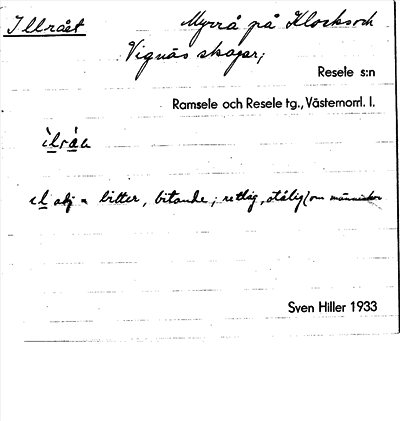 Illrået Myrrå på Klocks och
Vignäs skogar;
Resele s:n
Ramsele och Resele tg., Västernorrl. l.
ìlråa
il adj = bitter, bitande; retlig, otålig (om människor
Sven Hiller 1933